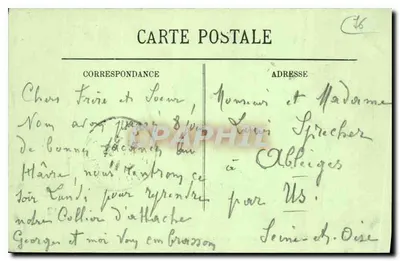 76
CARTE POSTALE
CORRESPONDANCE
ADRESSE
Chers Frère et Soeur,
Nous avons passé 8 jo
de bonnes vacances au
Hâvre, nous rentrons ce
soir Lundi pour reprendre
notre Collier d'attache
Georges et moi vous embrassons
Monsieur et Madame
Louis Sprecher
à Ableiges
par Us.
Seine-et-Oise
CARTAPHILIC